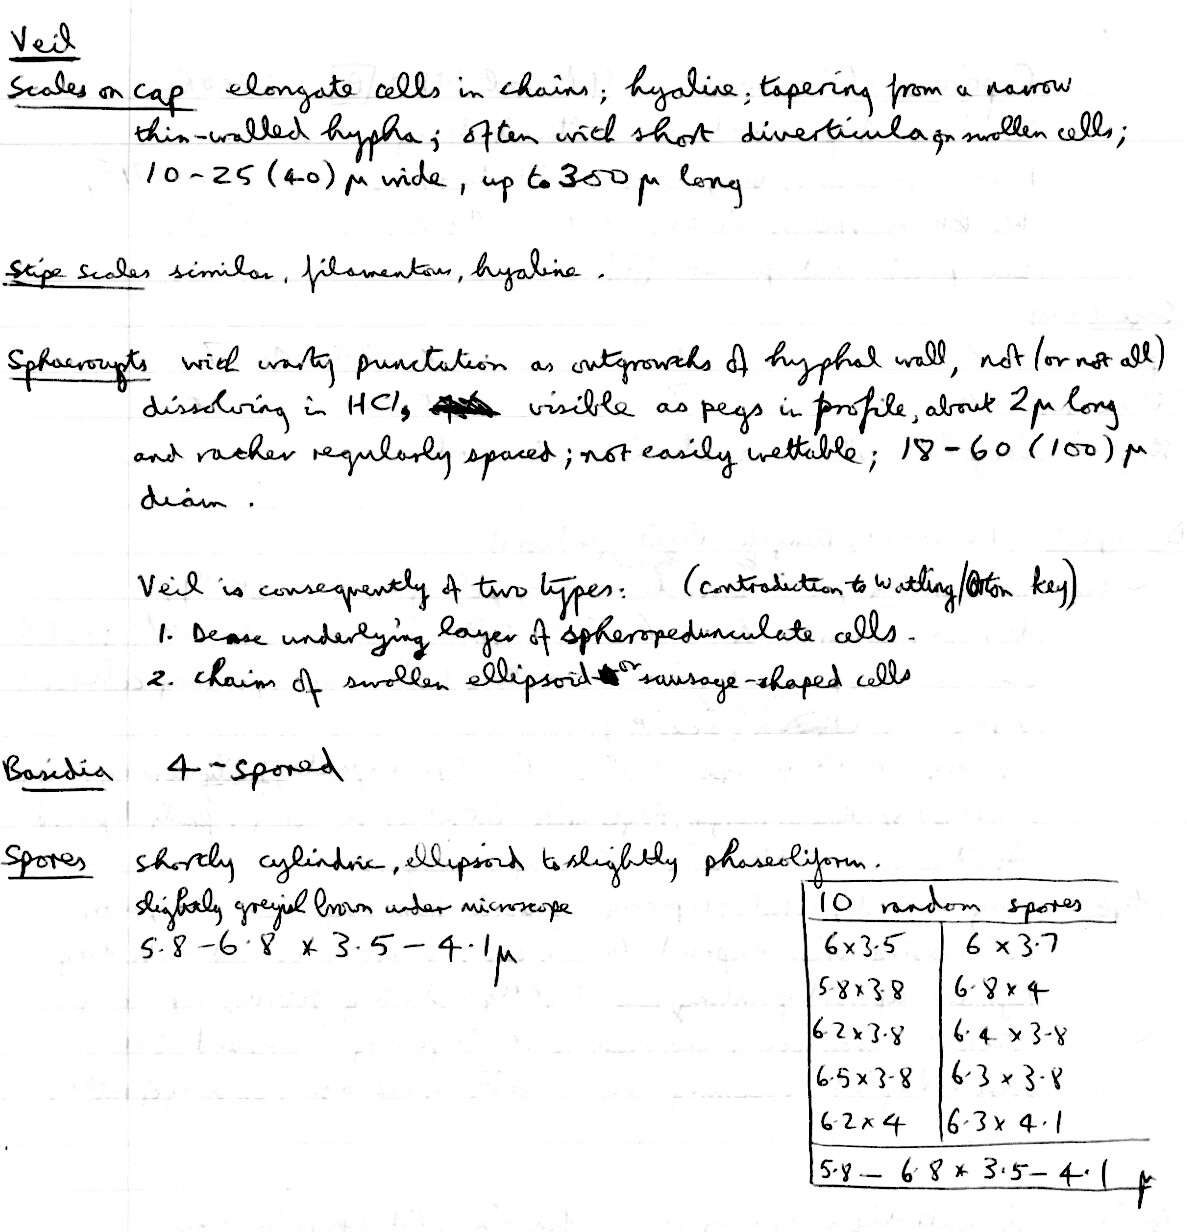 Veil
Scales on cap elongate cells in chains; hyaline; tapering from a narrow
thin-walled hypha; often with short diverticula on swollen cells;
10-25 (40) μ wide, up to 300 μ long
Stipe scales similar, filamentous, hyaline.
Sphaerocysts with warty punctation as outgrowths of hyphal wall, not (or not all)
dissolving in HCl, visible as pegs in profile, about 2 μ long
and rather regularly spaced; not easily wettable; 18-60 (100) μ
diam.
Veil is consequently of two types: (contradiction to Watling/Orton key)
1. Dense underlying layer of spheropedunculate cells.
2. chains of swollen ellipsoid or sausage-shaped cells
Basidia 4-spored
Spores shortly cylindric, ellipsoid to slightly phaseoliform.
slightly greyish brown under microscope
5.8-6.8 x 3.5-4.1 μ
10 random spores
6 x 3.5 6 x 3.7
5.8 x 3.8 6.8 x 4
6.2 x 3.8 6.4 x 3.8
6.5 x 3.8 6.3 x 3.8
6.2 x 4 6.3 x 4.1
5.8-6.8 x 3.5-4.1 μ